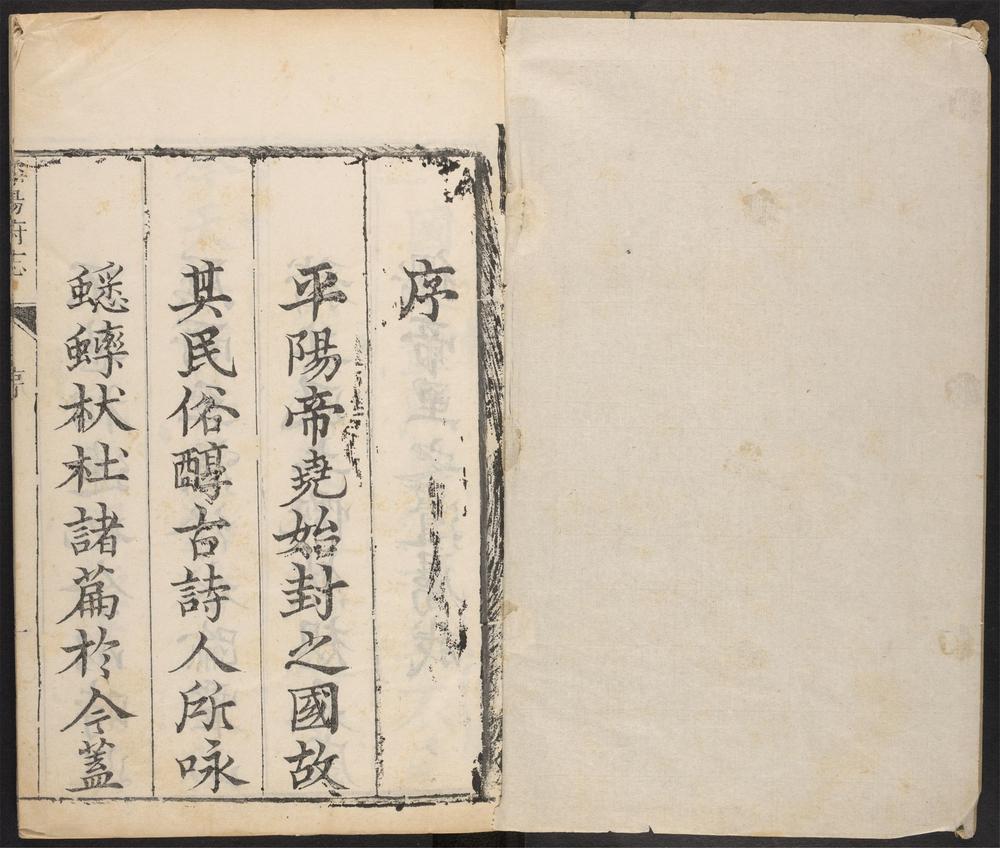 序
平陽帝堯始封之國故
其民俗醇古詩人所咏
蟋蟀杕杜諸篇於今蓋
平陽府志
序
一